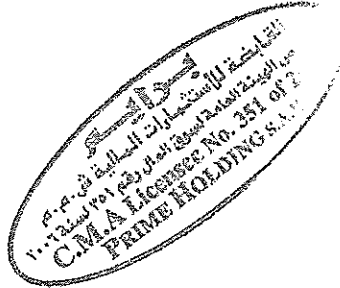 برايم
القابضة للاستثمارات المالية ش.م.م
من الهيئة العامة لسوق المال رقم ٣٥١ لسنة ٢٠٠٦
C.M.A Licensee No. 351 of 2
PRIME HOLDING S.A.